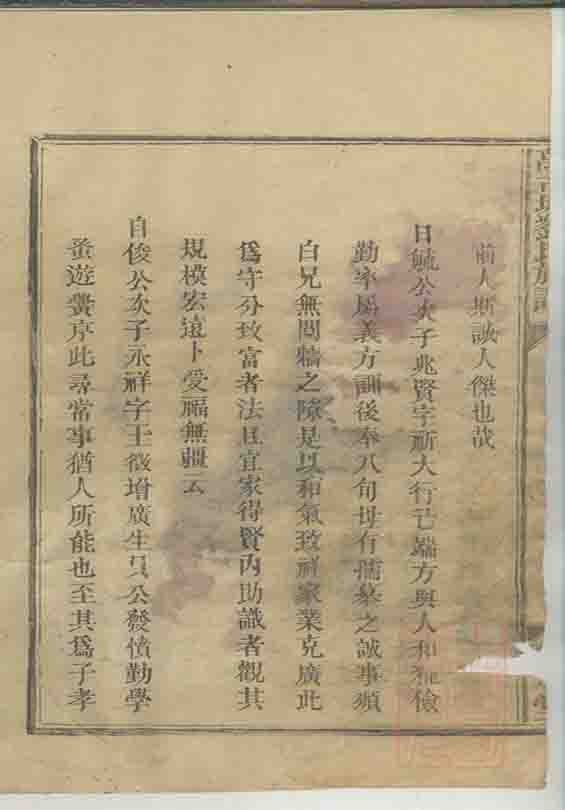 前人斯誠人傑也哉
日毓公次子兆賢字祈大行己端方與人和雍儉
勤率屬義方訓後奉八旬母有孺慕之誠事頻
白兄無鬩牆之隙是以和氣致祥家業克廣此
爲守分致富者法且宜家得賢內助識者觀其
規模宏遠卜受福無疆云
自俊公次子永祥字玉徵增廣生員公發憤勤學
蚤遊黌序此尋常事猶人所能也至其爲子孝